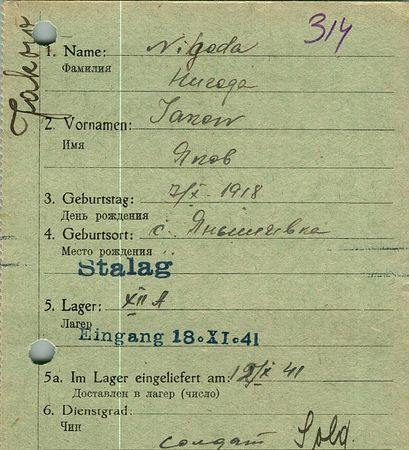 314
Jakow
1. Name: Nigoda
Фамилия
Нигода
2. Vornamen: Jakow
Имя
Яков
3. Geburtstag: 7/X - 1918
День рождения
4. Geburtsort: с.
Место рождения
Stalag
5. Lager: XII A
Лагер
Eingang 18.XI.41
5a. Im Lager eingeliefert am: 41
Доставлен в лагер (число)
6. Dienstgrad:
Чин
солдат Sold.